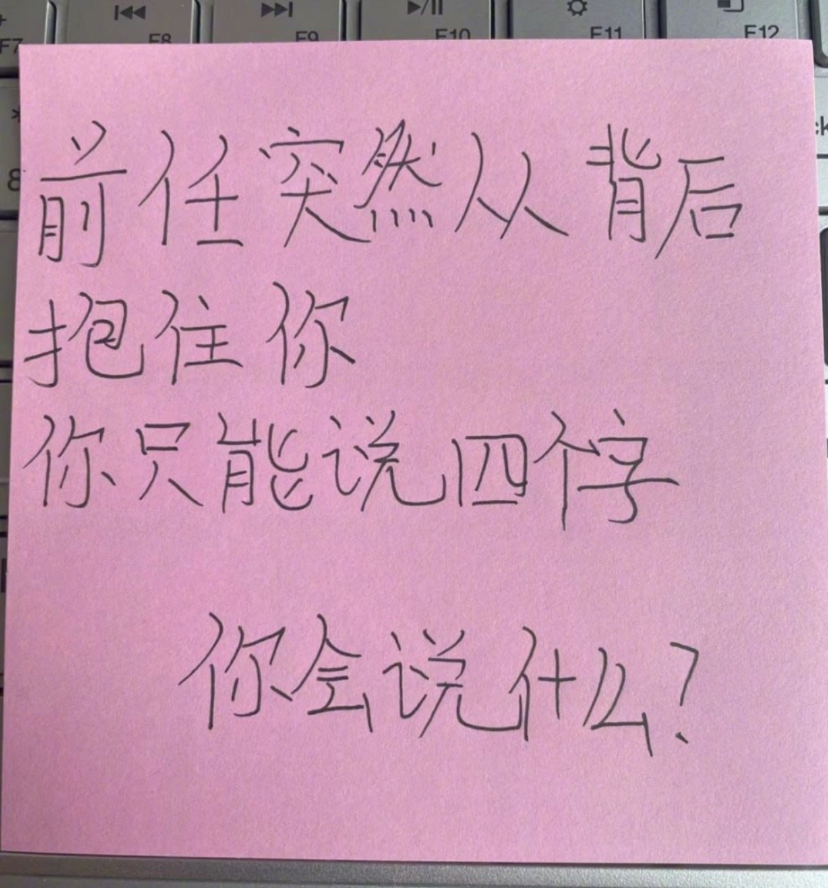 F7
F8
F9
F10
F11
F12
8
前任突然从背后
抱住你
你只能说四个字
你会说什么?